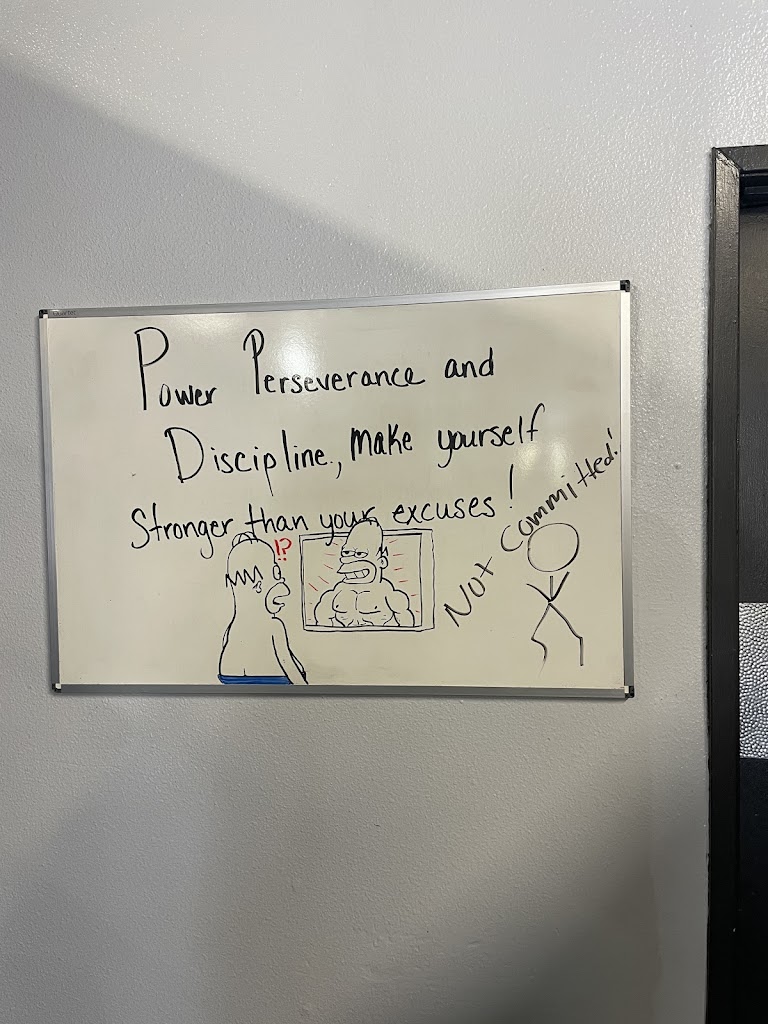 Power Perseverance and
Discipline, Make yourself
Stronger than your excuses!
!?
Not Committed!